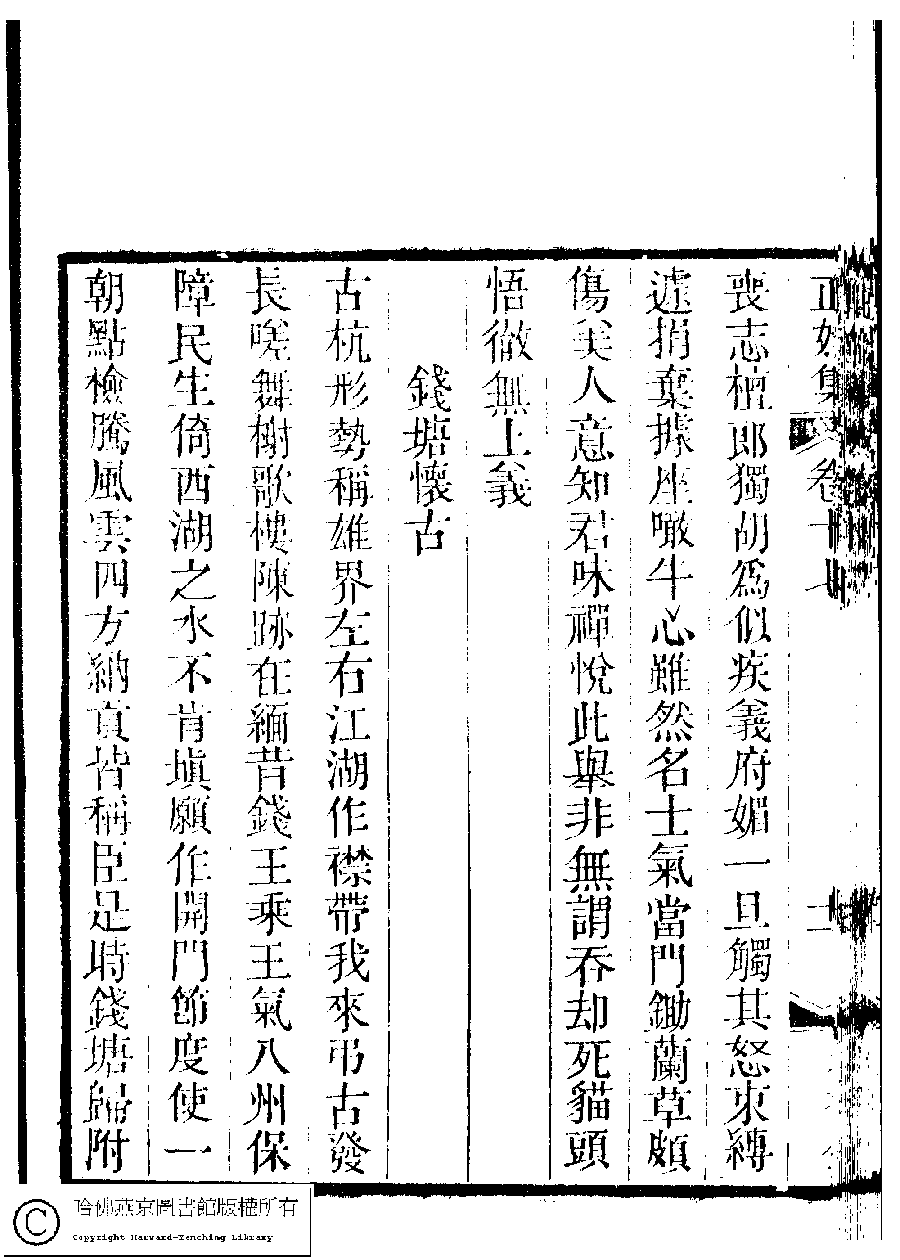 正始集 卷十七 二
喪志檀郎獨胡為似疾義府媚一旦觸其怒束縛
遽捐棄據座噉牛心雖然名士氣當門鋤蘭草頗
傷美人意知君味禪悅此舉非無謂吞却死貓頭
悟徹無上義
錢塘懷古
古杭形勢稱雄界左右江湖作襟帶我來弔古發
長嗟舞榭歌樓陳跡在緬昔錢王乘王氣八州保
障民生倚西湖之水不肯塡願作開門節度使一
朝點檢騰風雲四方納貢皆稱臣是時錢塘歸附
哈佛燕京圖書館版權所有
Copyright Harvard-Yenching Library